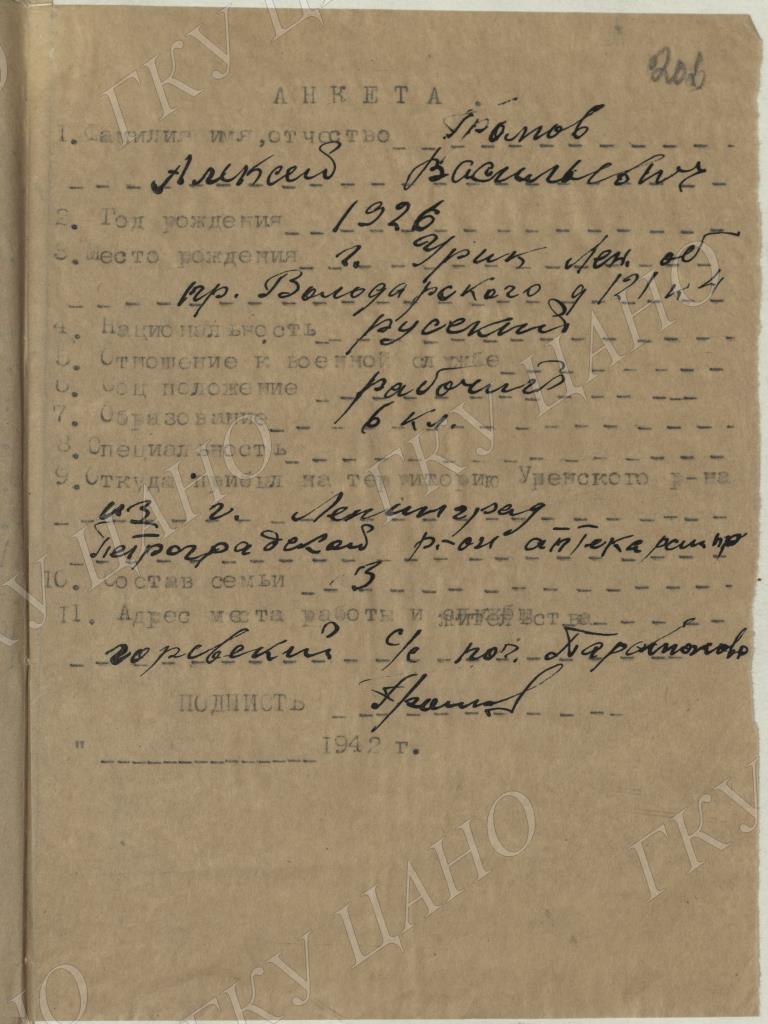 206
АНКЕТА.
1. Фамилия имя, отчество Громов
Алексей Васильевич
2. Год рождения 1926
3. Место рождения г. Урик Лен. об
пр. Володарского д 121 к 4
4. Национальность русский
5. Отношение к военной службе
6. Соц положение рабочий
7. Образование 6 кл.
8. Специальность
9. Откуда прибыл на территорию Уренского р-на
из г. Ленинград
Петроградской р-он аптекарш пр
10. Состав семьи 3
11. Адрес места работы и жительства
горевский с/с поч.
ПОДПИСТЬ Громов
" 1942 г.
ГКУ ЦАНО
ГКУ ЦАНО
ГКУ ЦАНО
ГКУ ЦАНО
ГКУ